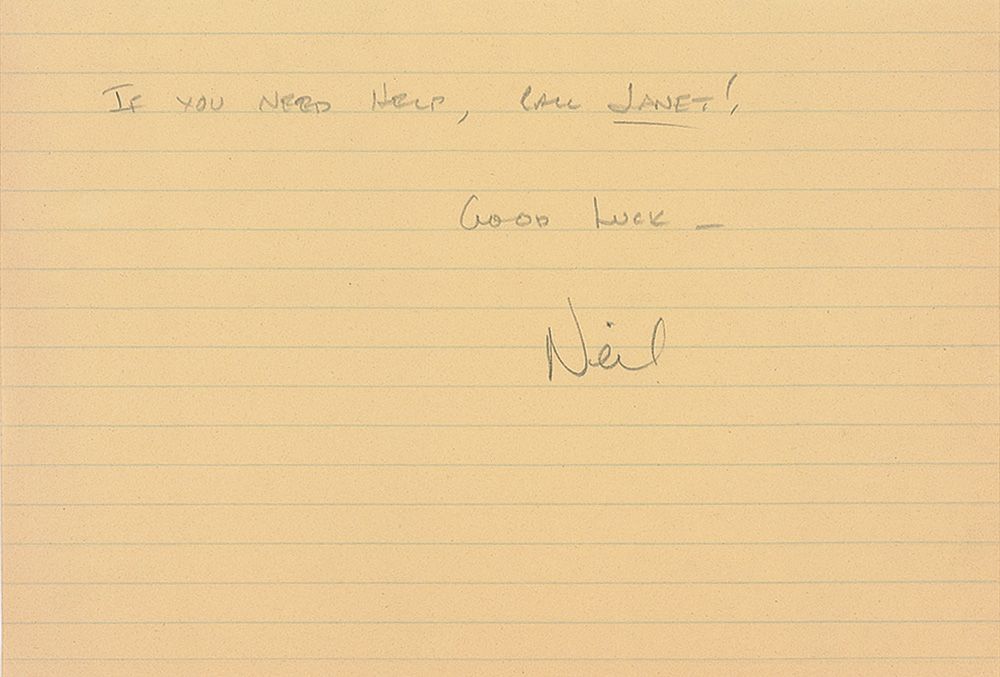 If you need help, call Janet!
Good luck –
Neil